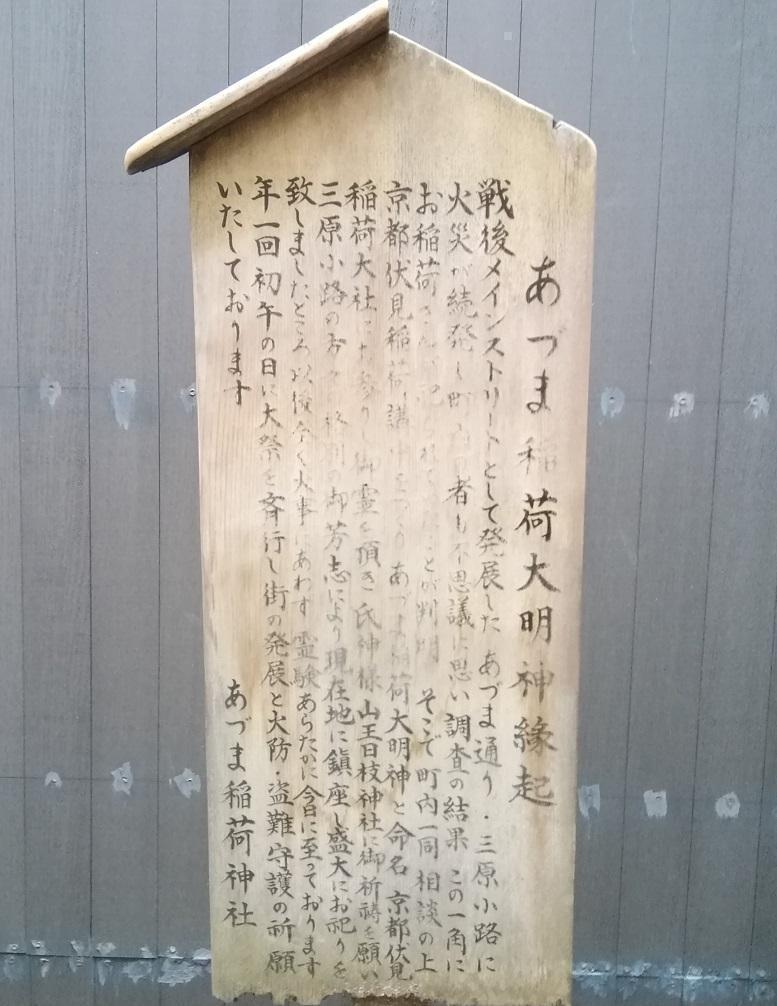 あづま稲荷大明神縁起
戦後メインストリートとして発展した あづま通り・三原小路に
火災が続発し町内の者も不思議に思い調査の結果 この一角に
お稲荷さんが祀られて ことが判明 そこで町内一同相談の上
京都伏見稲荷講中をつくり あづま稲荷大明神と命名 京都伏見
稲荷大社にお参りし御霊を頂き氏神様山王日枝神社に御祈祷を願い
三原小路の方々 格別の御芳志により現在地に鎮座し盛大にお祀りを
致しましたところ以後全く火事にあわず 霊験あらたかに今日に至っております
年一回初午の日に大祭を斉行し街の発展と火防・盗難守護の祈願
いたしております
あづま稲荷神社